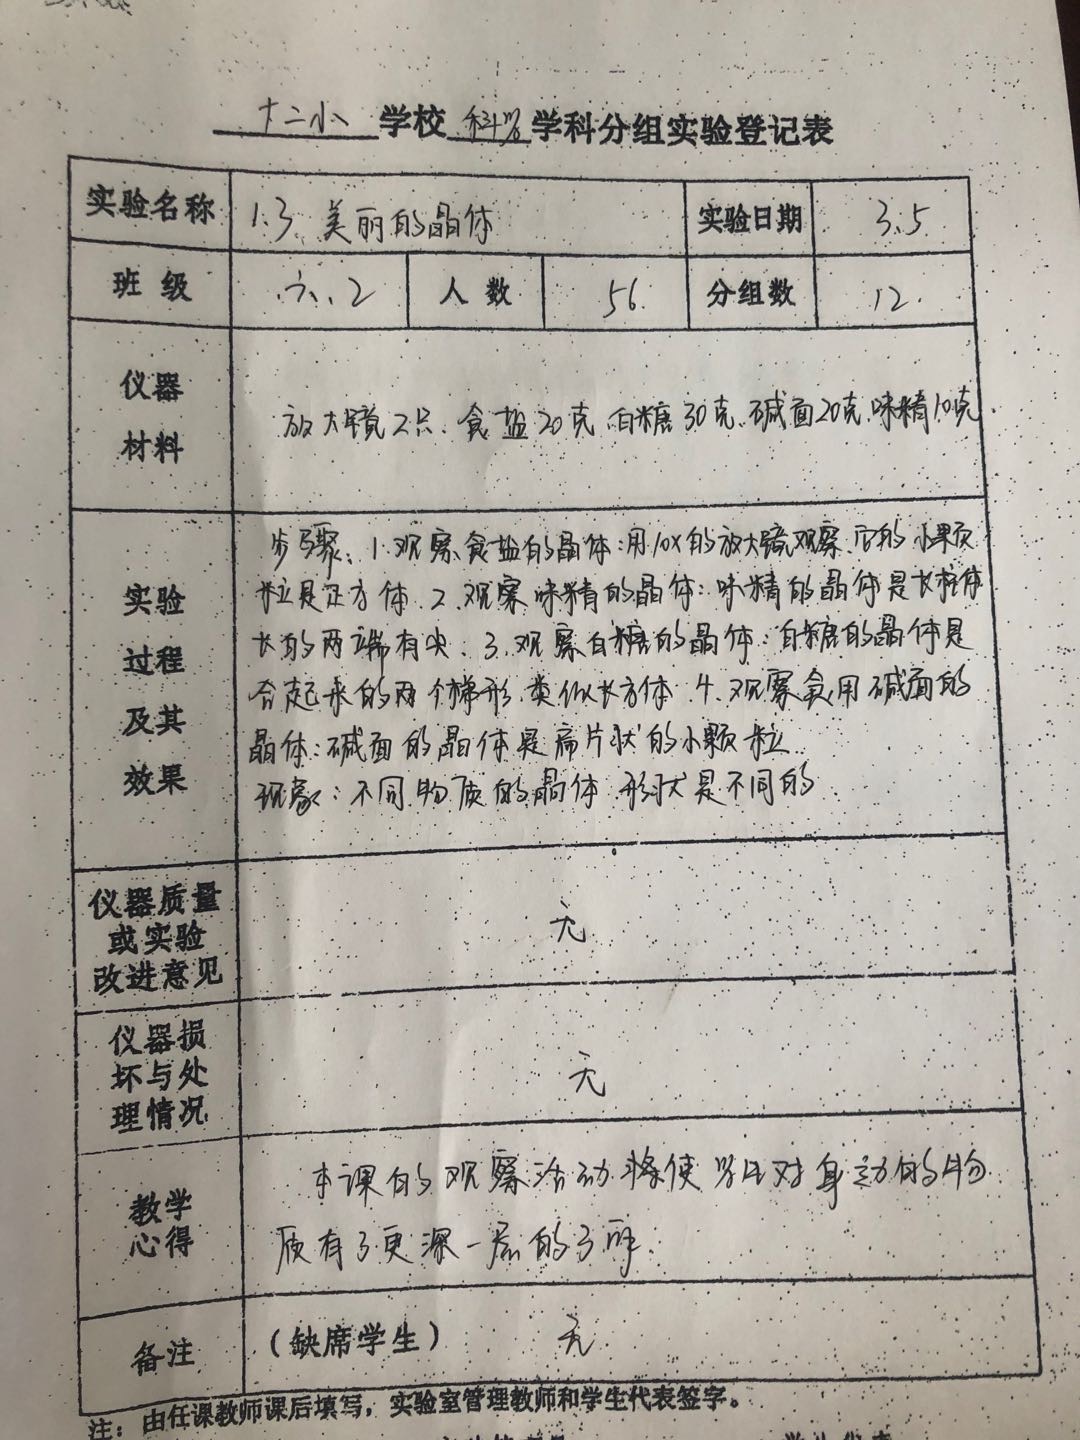 十二小学校科学学科分组实验登记表
实验名称 1.3 美丽的晶体 实验日期 3.5
班级 六.2 人数 56 分组数 12
仪器材料 放大镜2只、食盐20克、白糖30克、碱面20克、味精10克
实验过程及其效果
步骤、1.观察食盐的晶体:用10X的放大镜观察,它的小颗
粒是正方体.2.观察味精的晶体:味精的晶体是长柱体
长的两端有尖.3.观察白糖的晶体:白糖的晶体是
合起来的两个梯形,类似长方体.4.观察食用碱面的
晶体:碱面的晶体是扁片状的小颗粒
现象:不同物质的晶体形状是不同的
仪器质量或实验改进意见 无
仪器损坏与处理情况 无
教学心得
本课的观察活动将使学生对身边的物
质有了更深一层的了解.
备注 (缺席学生) 无
注:由任课教师课后填写,实验室管理教师和学生代表签字。